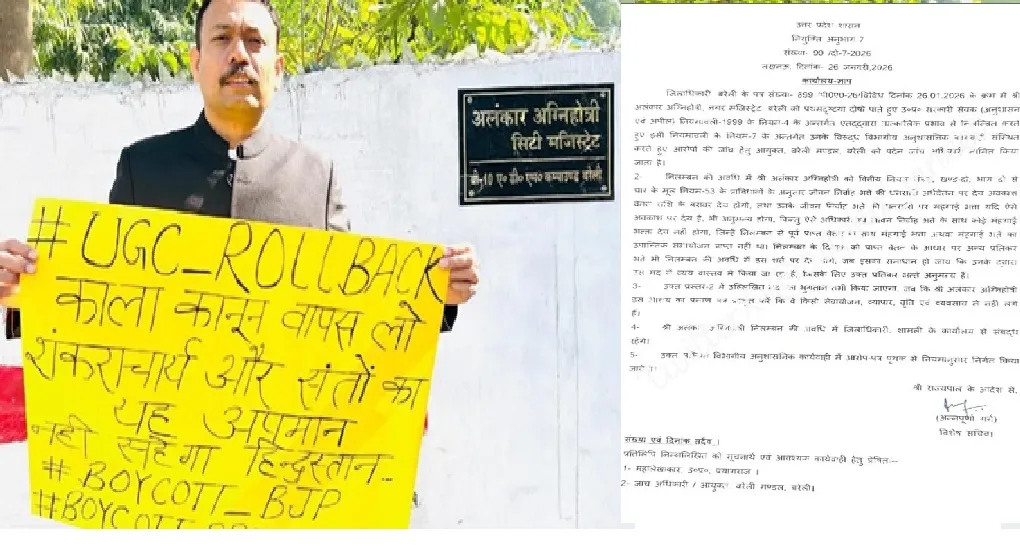 अलंकार अग्निहोत्री
सिटी मजिस्ट्रेट
बी-10 ए० डी० एम० कम्पाउण्ड बरेली
#UGC_ROLLBACK
काला कानून वापस लो
शंकराचार्य और संतों का
यह अपमान
नहीं सहेगा हिन्दुस्तान...
#BOYCOTT_BJP
#BOYCOTT
उत्तर प्रदेश शासन
नियुक्ति अनुभाग-7
संख्या- 90 /दो-7-2026
लखनऊ, दिनांक- 26 जनवरी,2026
कार्यालय-ज्ञाप
जिलाधिकारी बरेली के पत्र संख्या- 899 दिनांक 26.01.2026 के क्रम में श्री
अलंकार अग्निहोत्री, नगर मजिस्ट्रेट बरेली को प्रथमदृष्टया दोषी पाते हुए उ०प्र० सरकारी सेवक (अनुशासन
एवं अपील) नियमावली-1999 के नियम-4 के अन्तर्गत एतद्द्वारा तात्कालिक प्रभाव से निलम्बित करते
हुए इसी नियमावली के नियम-7 के अन्तर्गत उनके विरुद्ध विभागीय अनुशासनिक संस्थित
करते हुए आरोपों की जांच हेतु आयुक्त, बरेली मण्डल, बरेली को पदेन जांच नामित किया
जाता है।
2- निलम्बन की अवधि में श्री अलंकार अग्निहोत्री को वित्तीय नियम खण्ड-दो, भाग दो से
चार के मूल नियम-53 के प्राविधानों के अनुसार जीवन निर्वाह भत्ते की धनराशि अर्धवेतन पर देय अवकाश
वेतन राशि के बराबर देय होगी, तथा उनके जीवन निर्वाह भत्ते की धनराशि पर महंगाई भत्ता यदि ऐसे
अवकाश पर देय है, भी अनुमन्य होगा, किन्तु ऐसे अधिकारी जीवन निर्वाह भत्ते के साथ कोई मंहगाई
भत्ता देय नहीं होगा, जिन्हें निलम्बन से पूर्व प्राप्त वेतन के साथ महंगाई भत्ता अथवा महंगाई भत्ते का
उपान्तिक समायोजन प्राप्त नहीं था। निलम्बन के दिनांक को प्राप्त वेतन के आधार पर अन्य प्रतिकर
भत्ते भी निलम्बन की अवधि में इस शर्त पर देय होंगे, जब इसका समाधान हो जाय कि उनके द्वारा
उस मद में व्यय वास्तव में किया जा रहा है, जिसके लिए उक्त प्रतिकर भत्ते अनुमन्य है।
3- उक्त प्रस्तर-2 में उल्लिखित मद का भुगतान तभी किया जाएगा, जब कि श्री अलंकार अग्निहोत्री
इस आशय का प्रमाण पत्र प्रस्तुत करें कि वे किसी सेवायोजन, व्यापार, वृत्ति एवं व्यवसाय में नहीं लगे
हैं।
4- श्री अलंकार अग्निहोत्री निलम्बन की अवधि में जिलाधिकारी, शामली के कार्यालय से संबद्ध
रहेंगे।
5- उक्त विभागीय अनुशासनिक कार्यवाही में आरोप-पत्र पृथक से नियमानुसार निर्गत किया
जायेगा।
श्री राज्यपाल के आदेश से,
(अन्नपूर्णा गर्ग)
विशेष सचिव।
संख्या एवं दिनांक तदैव।
प्रतिलिपि निम्नलिखित को सूचनार्थ एवं आवश्यक कार्यवाही हेतु प्रेषित:-
1- महालेखाकार, उ०प्र०, प्रयागराज ।
2- जांच अधिकारी / आयुक्त, बरेली मण्डल, बरेली।